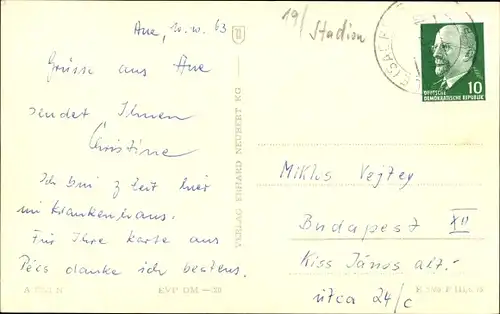 Aue, 10.10.63
Grüsse aus Aue
sendet Ihnen
Christine
Ich bin z Zeit hier
im Krankenhaus.
Für Ihre Karte aus
Pécs danke ich bestens.
VERLAG ERHARD NEUBERT KG
EVP DM
19/
Stadion
DEUTSCHE
DEMOKRATISCHE REPUBLIK
10
Miklos Vejtey
Budapest XII
Kiss János alt.-
utca 24/c